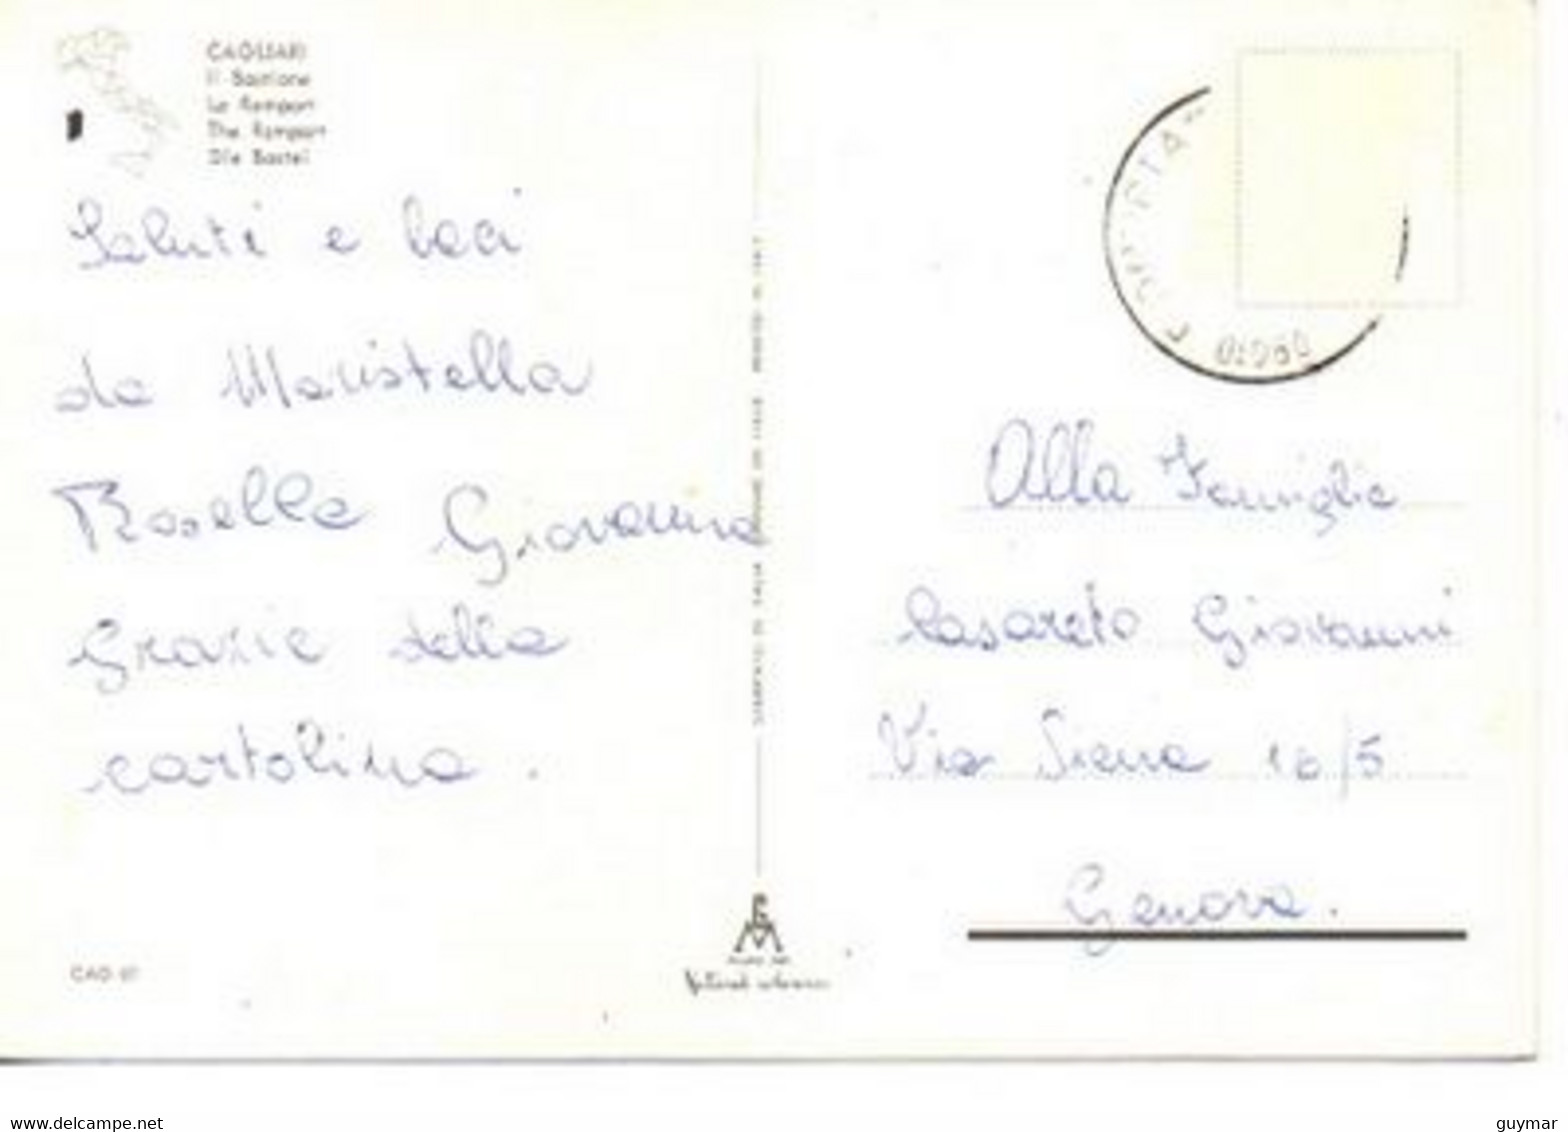 CAGLIARI
Il Bastione
Le Rempart
The Rampart
Die Bastei
Saluti e baci
da Maristella
Rosella Giovanna
Grazie della
cartolina.
CAG 67
Alla Famiglia
Casareto Giovanni
Via Siena 16/5
Genova.
delcampe.net
guymar